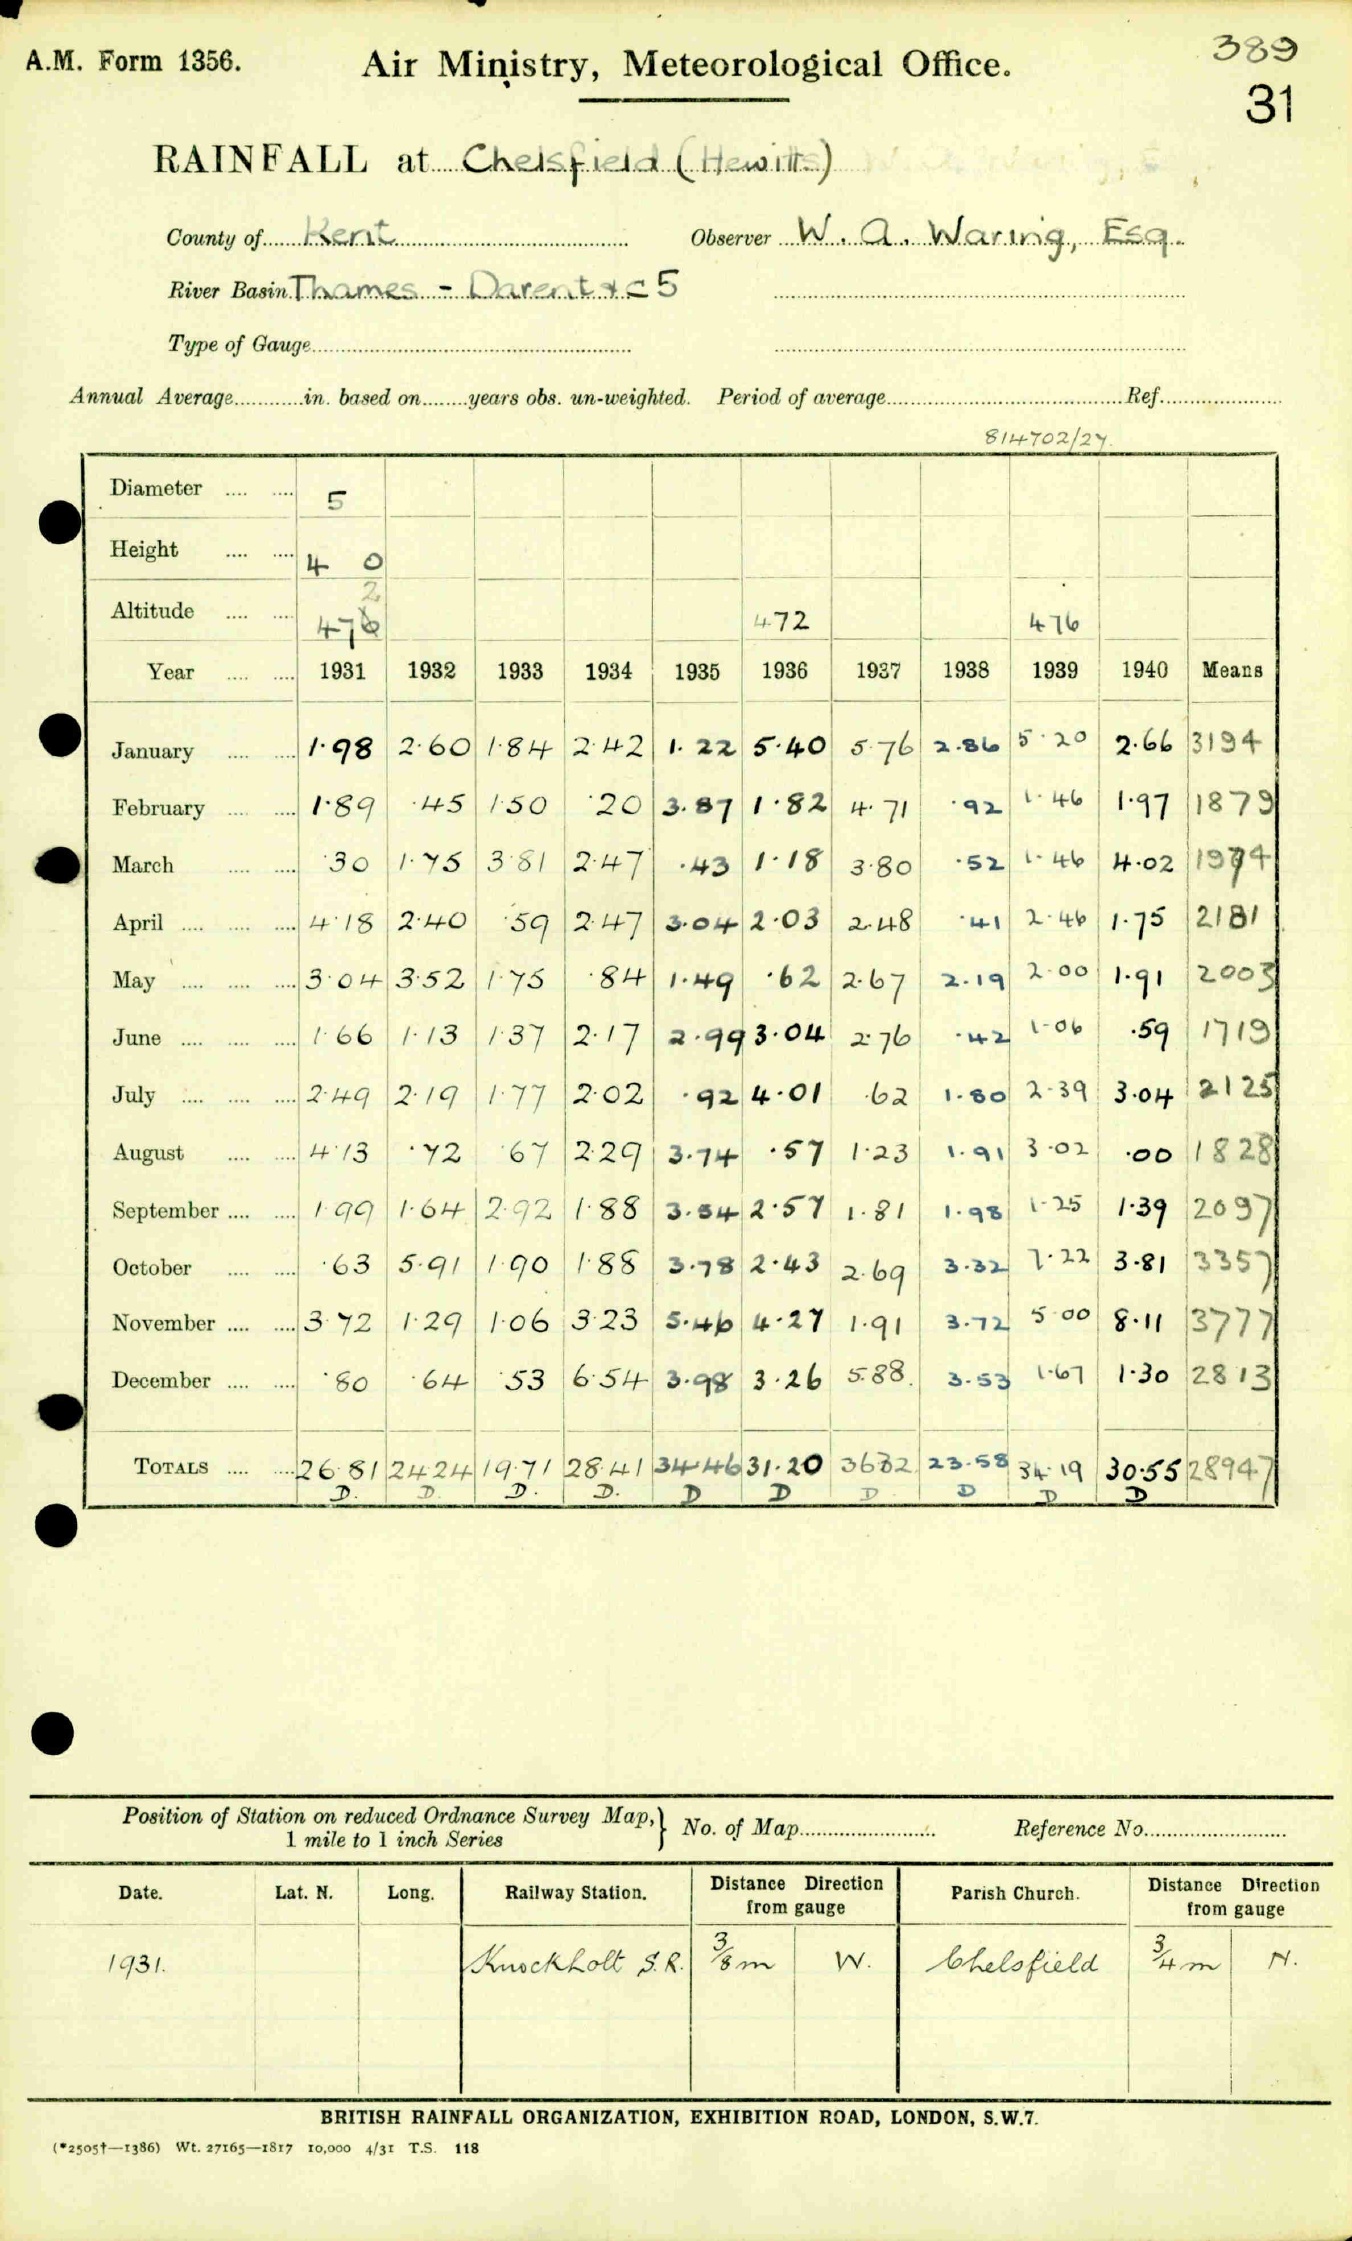 A.M. Form 1356.
Air Ministry, Meteorological Office.
389
31
RAINFALL at Chelsfield (Hewitts)
County of Kent Observer W. A. Waring, Esq.
River Basin Thames - Darent &c 5
Type of Gauge
Annual Average in. based on years obs. un-weighted. Period of average Ref.
814702/27.
Diameter 5
Height 4 0
2
Altitude 476 472 476
Year 1931 1932 1933 1934 1935 1936 1937 1938 1939 1940 Means
January 1·98 2·60 1·84 2·42 1·22 5·40 5·76 2·86 5·20 2·66 3194
February 1·89 ·45 1·50 ·20 3·87 1·82 4·71 ·92 1·46 1·97 1879
March ·30 1·75 3·81 2·47 ·43 1·18 3·80 ·52 1·46 4·02 1974
April 4·18 2·40 ·59 2·47 3·04 2·03 2·48 ·41 2·46 1·75 2181
May 3·04 3·52 1·75 ·84 1·49 ·62 2·67 2·19 2·00 1·91 2003
June 1·66 1·13 1·37 2·17 2·99 3·04 2·76 ·42 1·06 ·59 1719
July 2·49 2·19 1·77 2·02 ·92 4·01 ·62 1·80 2·39 3·04 2125
August 4·13 ·72 ·67 2·29 3·74 ·57 1·23 1·91 3·02 ·00 1828
September 1·99 1·64 2·92 1·88 3·54 2·57 1·81 1·98 1·25 1·39 2097
October ·63 5·91 1·90 1·88 3·78 2·43 2·69 3·32 7·22 3·81 3357
November 3·72 1·29 1·06 3·23 5·46 4·27 1·91 3·72 5·00 8·11 3777
December ·80 ·64 ·53 6·54 3·98 3·26 5·88 3·53 1·67 1·30 2813
TOTALS 26·81 24·24 19·71 28·41 34·46 31·20 36·32 23·58 34·19 30·55 28947
D. D. D. D. D D D D D D
Position of Station on reduced Ordnance Survey Map, 1 mile to 1 inch Series } No. of Map Reference No.
Date. Lat. N. Long. Railway Station. Distance Direction from gauge Parish Church. Distance Direction from gauge
1931. Knockholt S.R. 3/8 m W. Chelsfield 3/4 m N.
BRITISH RAINFALL ORGANIZATION, EXHIBITION ROAD, LONDON, S.W.7.
(*2505†—1386) Wt. 27165—1817 10,000 4/31 T.S. 118